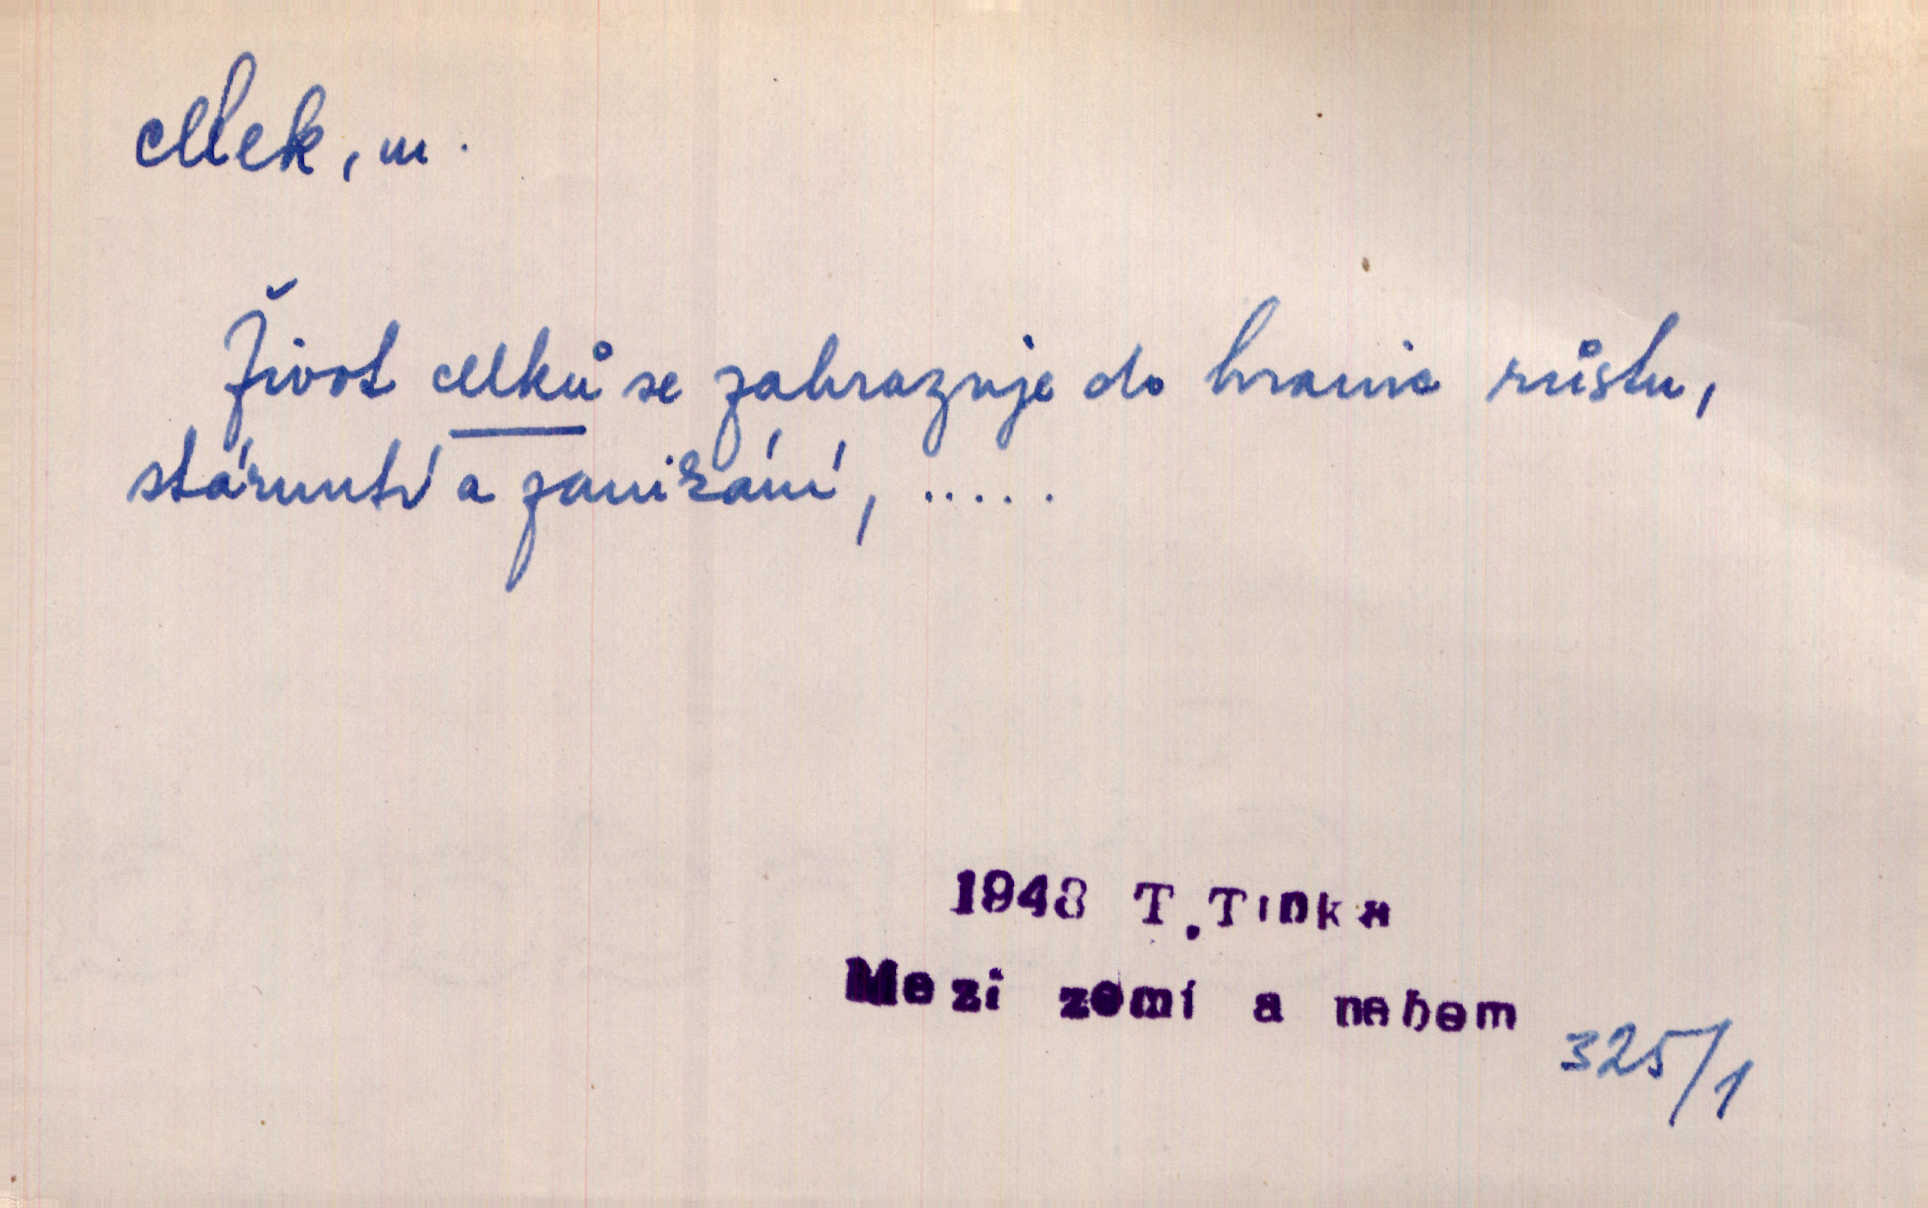 celek, m.
Život celků se zahrazuje do hranic růstu,
stárnutí a zanikání, .....
1948 T. Tinka
Mezi zemí a nebem
325/1